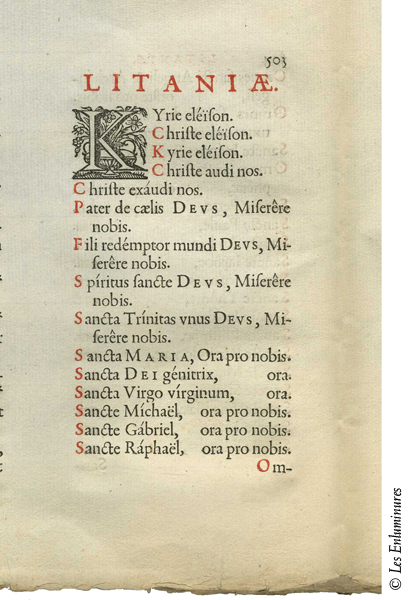 503
LITANIÆ.
KYrie eléïson.
Christe eléïson.
Kyrie eléison.
Christe audi nos.
Christe exáudi nos.
Pater de cælis DEVS, Miserêre
nobis.
Fili redémptor mundi DEVS, Mi-
serêre nobis.
Spíritus sancte DEVS, Miserêre
nobis.
Sancta Trínitas vnus DEVS, Mi-
serêre nobis.
Sancta MARIA, Ora pro nobis.
Sancta DEI génitrix, ora.
Sancta Virgo vírginum, ora.
Sancte Míchaël, ora pro nobis.
Sancte Gábriel, ora pro nobis.
Sancte Ráphaël, ora pro nobis.
Om-
© Les Enluminures